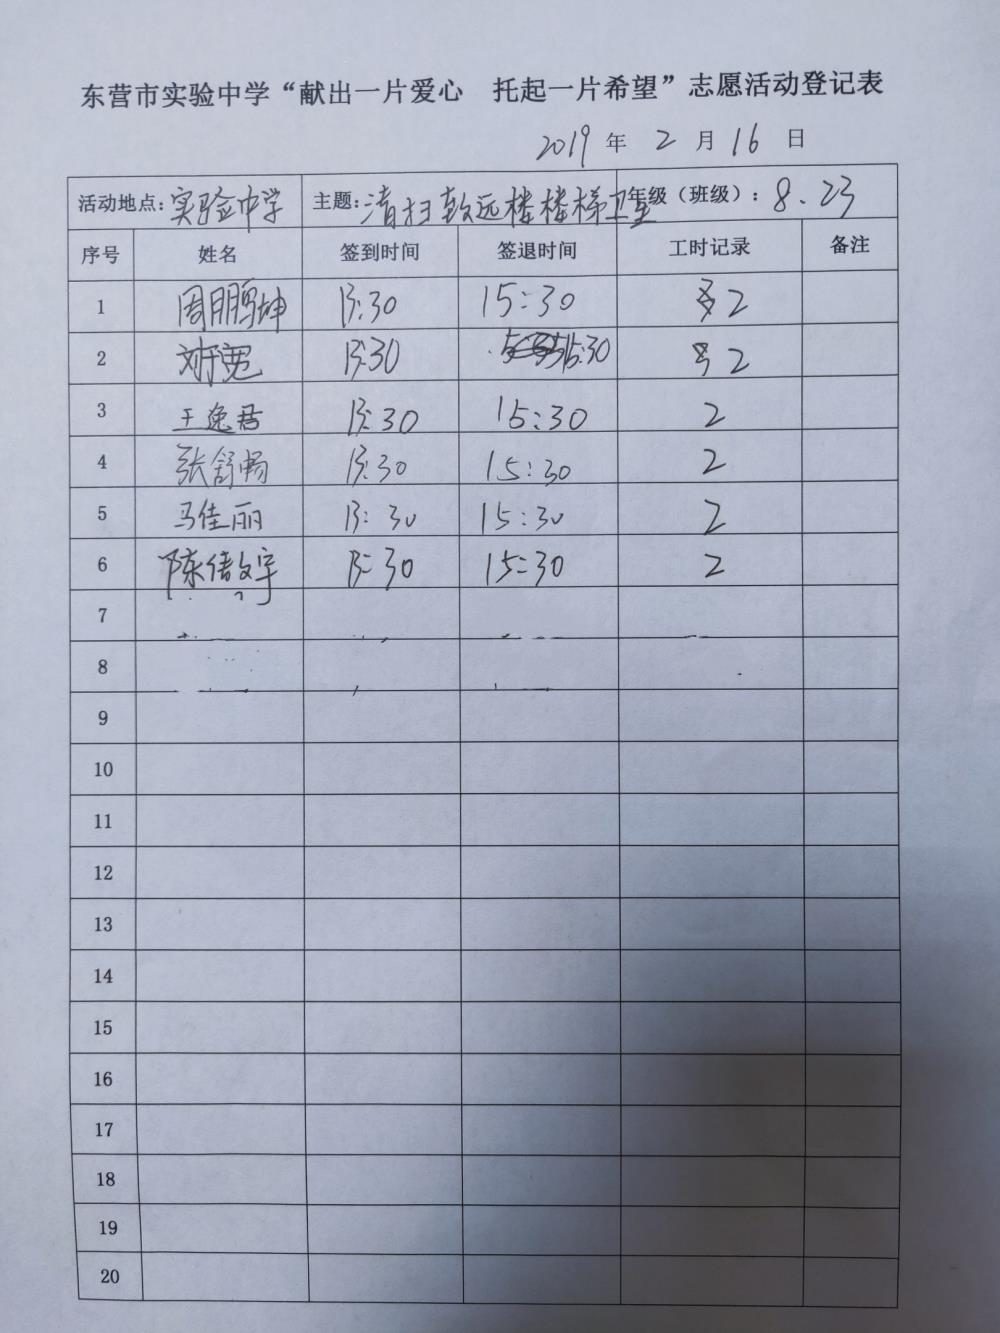 东营市实验中学“献出一片爱心 托起一片希望”志愿活动登记表
2019 年 2 月 16 日
活动地点：实验中学 主题：清扫致远楼楼梯卫生 年级（班级）：8.23
序号 姓名 签到时间 签退时间 工时记录 备注
1 周鹏坤 13:30 15:30 2
2 刘宽 13:30 15:30 2
3 王逸君 13:30 15:30 2
4 张舒畅 13:30 15:30 2
5 马佳丽 13:30 15:30 2
6 陈倩文宇 13:30 15:30 2
7
8
9
10
11
12
13
14
15
16
17
18
19
20